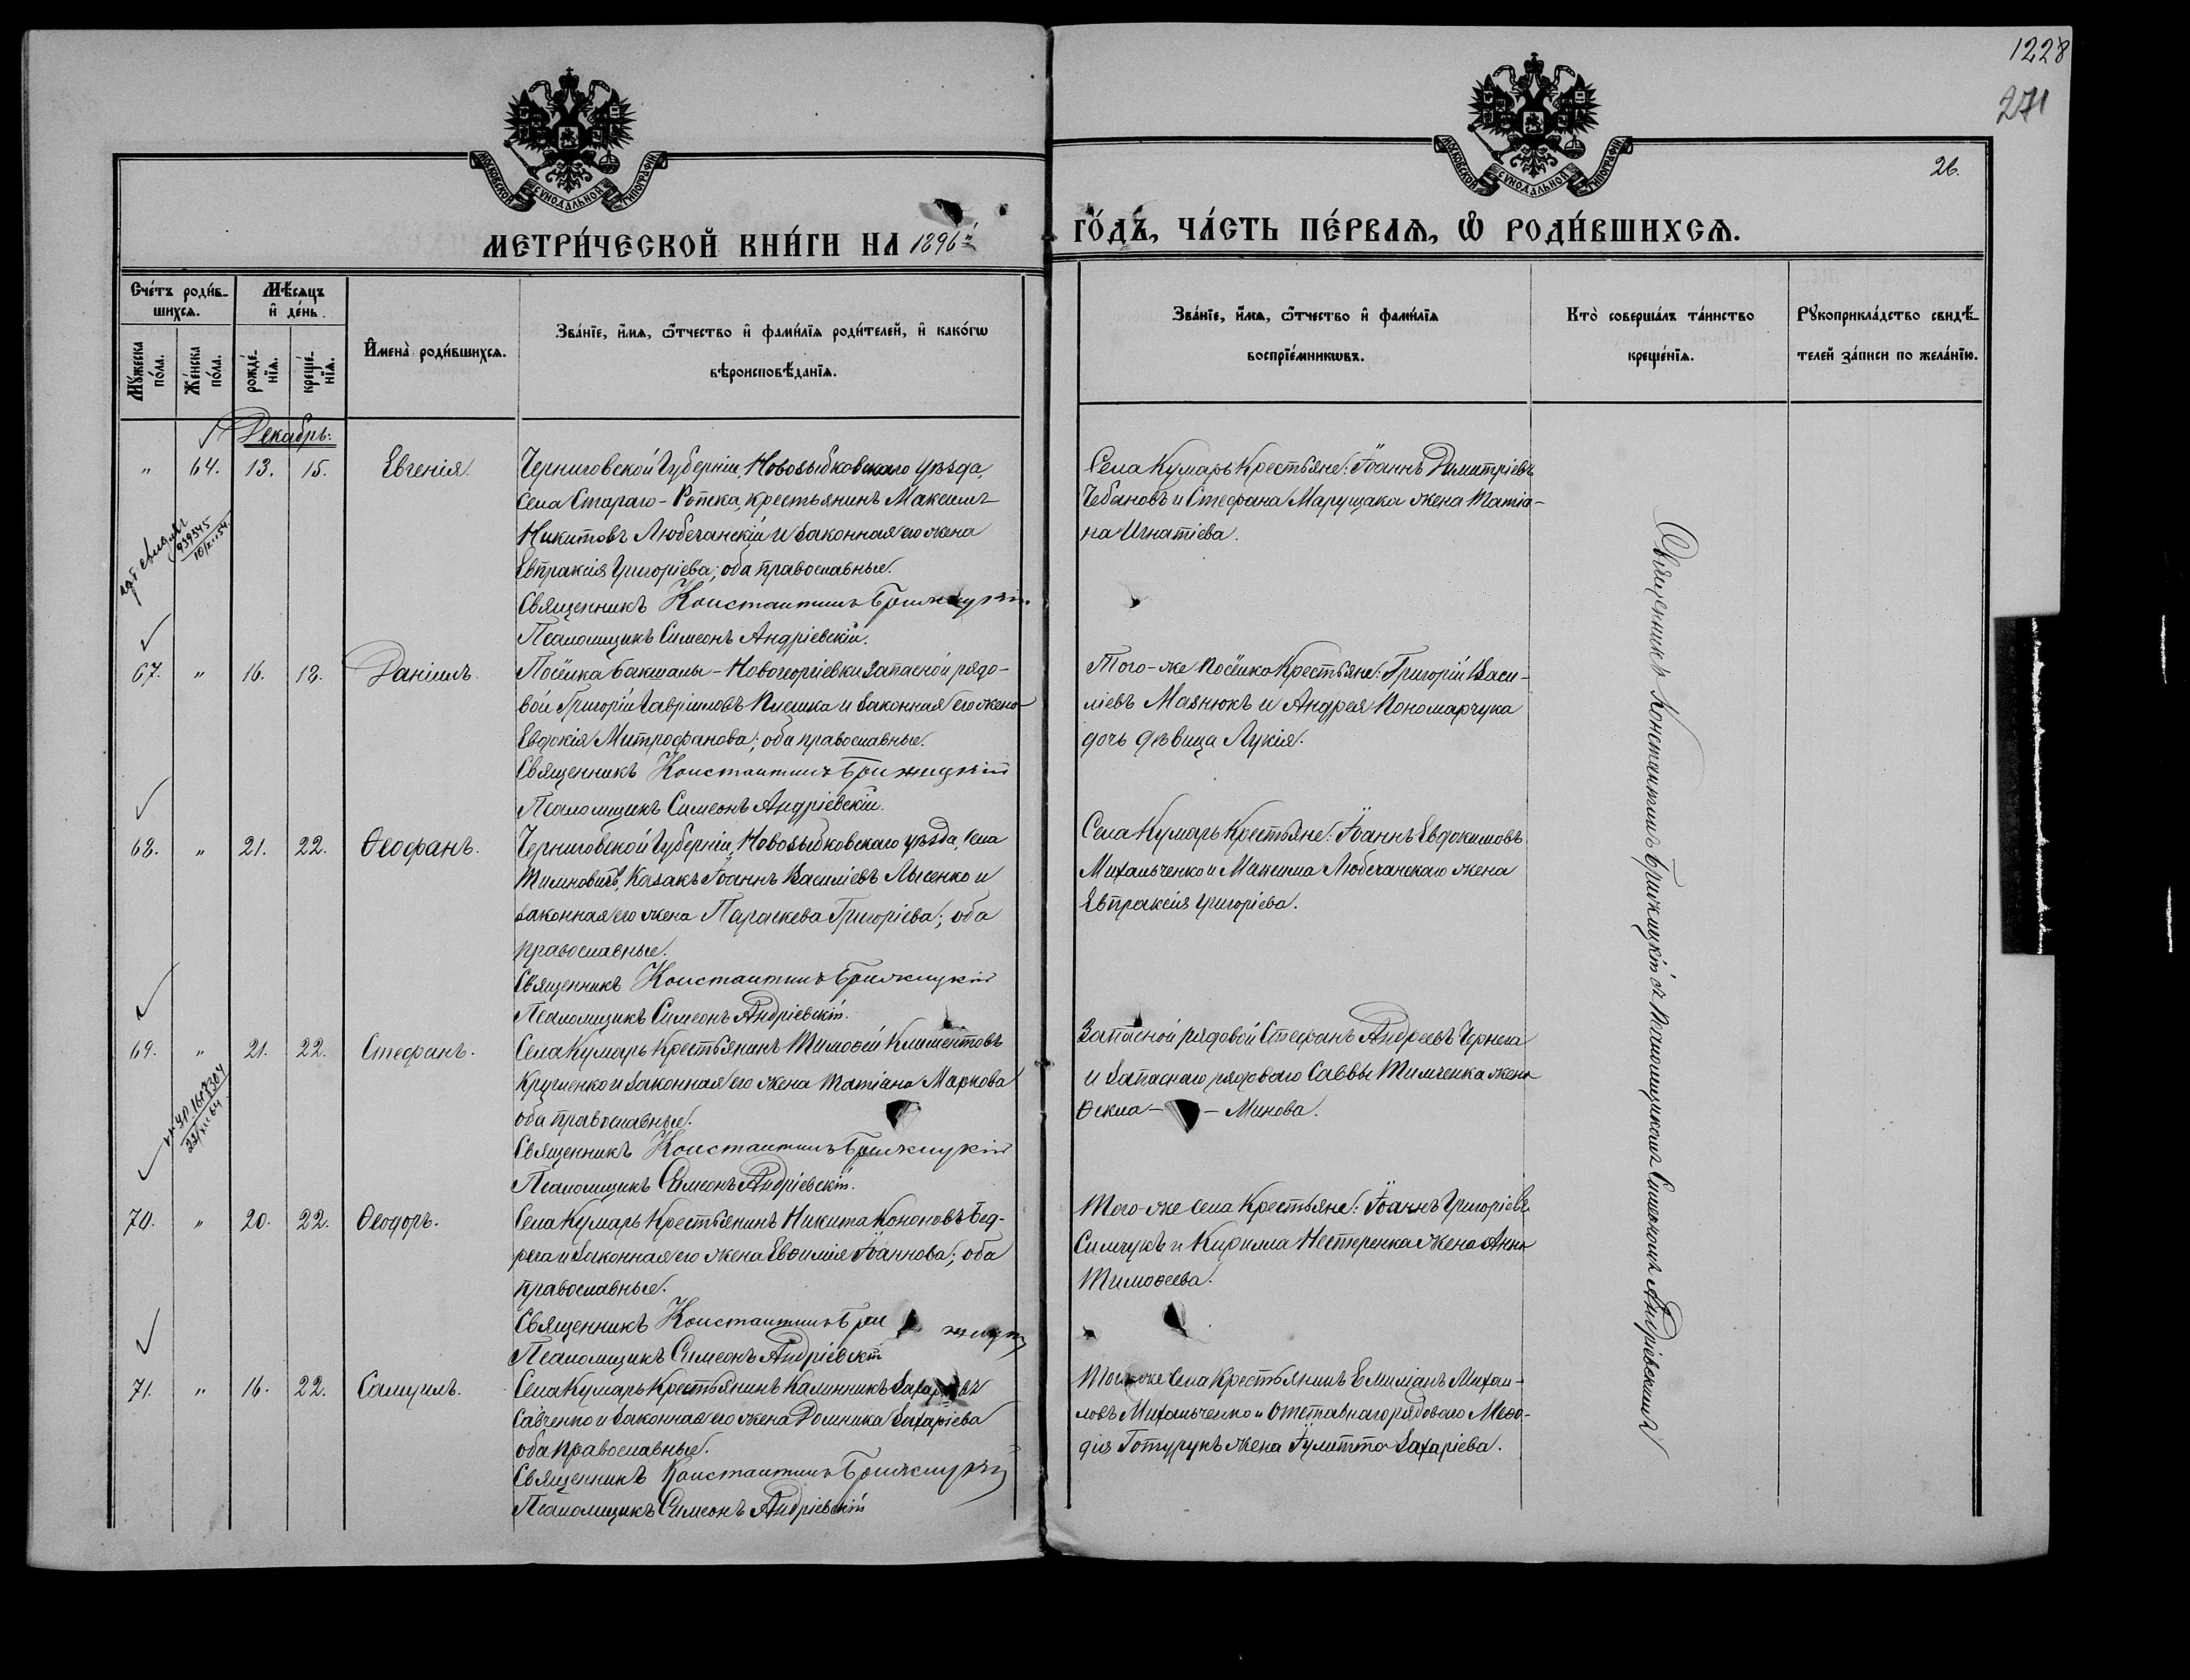 1228
271
26.
МОСКОВСКОЙ СѴНОДАЛЬНОЙ ТИПОГРАФІИ
МОСКОВСКОЙ СѴНОДАЛЬНОЙ ТИПОГРАФІИ
МЕТРИ́ЧЕСКОЙ КНИ́ГИ НА 1896й
ГО́ДЪ, ЧА́СТЬ ПЕ́РВАѦ, Ѡ РОДИ́ВШИХСѦ.
Сче́тъ роди́в-
шихсѧ.
Мꙋ́жеска по́ла.
Же́нска по́ла.
Мѣ́сѧцъ
и҆ де́нь.
рожде́-
нїѧ.
креще́-
нїѧ.
И҆мена̀ роди́вшихсѧ.
Зва́нїе, и҆́мѧ, ѻ҆́тчество и҆ фами́лїѧ роди́телей, и҆ како́гѡ
вѣроисповѣ́данїѧ.
Зва́нїе, и҆́мѧ, ѻ҆́тчество и҆ фами́лїѧ
воспрїе́мникѡвъ.
Кто̀ соверша́лъ та́инство
креще́нїѧ.
Рꙋкоприкла́дство свидѣ́-
телей за́писи по жела́нїю.
Декабрь:
" 64. 13. 15. Евгенія.
Черниговской Губерніи, Новозыбковскаго уѣзда,
Села Стараго-Ропска, крестьянинъ Максимъ
Никитовъ Любечанскій и законная его жена
Евпраксія Григоріева; оба православные.
Священникъ Константинъ Брижицкій
Псаломщикъ Симеонъ Андріевскій.
Села Кумарь Крестьяне: Іоаннъ Димитріевъ
Чебановъ и Стефана Марущака жена Татіа-
на Игнатіева.
67. " 16. 18. Даніилъ.
Посёлка Бакшалы-Новогеоргіевки Запасной рядо-
вой Григорій Гавріиловъ Плешка и законная его жена
Евдокія Митрофанова; оба православные.
Священникъ Константинъ Брижицкій
Псаломщикъ Симеонъ Андріевскій.
Того-же посёлка Крестьяне: Григорій Васи-
ліевъ Мазнюкъ и Андрея Пономарчука
дочь дѣвица Лукія.
68. " 21. 22. Ѳеофанъ.
Черниговской Губерніи, Новозыбковскаго уѣзда, села
Тимоновичъ, Казакъ Іоаннъ Василіевъ Лысенко и
законная его жена Параскева Григоріева; оба
православные.
Священникъ Константинъ Брижицкій
Псаломщикъ Симеонъ Андріевскій.
Села Кумарь Крестьяне: Іоаннъ Евдокимовъ
Михальченко и Максима Любечанскаго жена
Евпраксія Григоріева.
69. " 21. 22. Стефанъ.
Села Кумарь Крестьянинъ Тимоѳей Климентовъ
Кругленко и законная его жена Татіана Маркова
оба православные.
Священникъ Константинъ Брижицкій
Псаломщикъ Симеонъ Андріевскій.
Запасной рядовой Стефанъ Андреевъ Чернега
и запаснаго рядоваго Саввы Тимченка жена
Ѳекла — — Минова.
70. " 20. 22. Ѳеодоръ.
Села Кумарь Крестьянинъ Никита Кононовъ Бед-
рега и законная его жена Евѳимія Іоаннова; оба
православные.
Священникъ Константинъ Брижицкій
Псаломщикъ Симеонъ Андріевскій
Того-же села Крестьяне: Іоаннъ Григоріевъ
Симчукъ и Кирилла Нестеренка жена Анна
Тимоѳеева.
71. " 16. 22. Самуилъ.
Села Кумарь Крестьянинъ Калинникъ Захаріевъ
Савченко и законная его жена Домника Захаріева
оба православные.
Священникъ Константинъ Брижицкій
Псаломщикъ Симеонъ Андріевскій
Того-же Села Крестьянинъ Емиліанъ Михаи-
ловъ Михальченко и Отставнаго рядоваго Меѳо-
дія Готурунъ жена Іулитта Захаріева.
Священникъ Константинъ Брижицкій съ псаломщикомъ Симеономъ Андріевскимъ